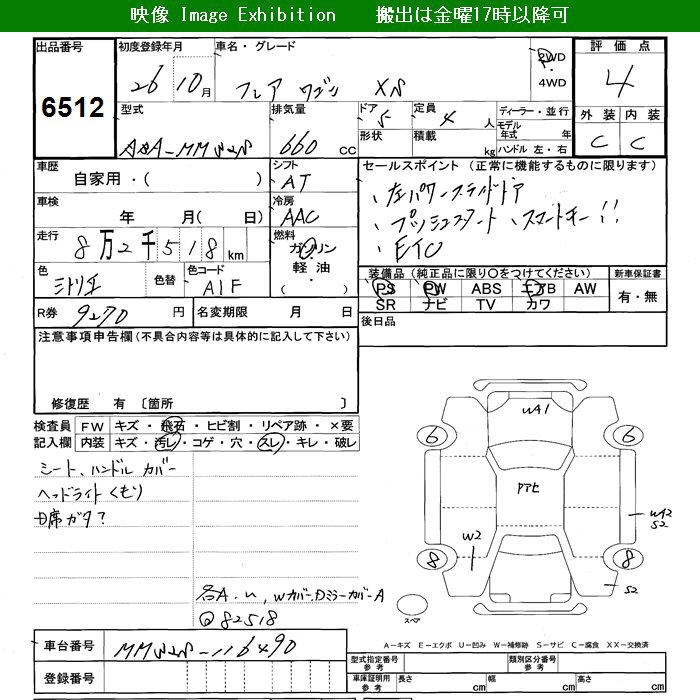 映像 Image Exhibition 搬出は金曜17時以降可
出品番号 6512
初度登録年月 26 10月
車名・グレード フレア ワゴン XS
2WD
4WD
評価点 4
外装 内装
C C
型式
排気量 660 cc
ドア 5
形状
定員 4 人
積載 kg
ディーラー・並行
モデル年式 年
ハンドル 左・右
車歴 自家用・( )
シフト AT
セールスポイント (正常に機能するものに限ります)
、左パワースライドドア
、プッシュスタート 、スマートキー!!
、ETC
車検 年 月( 日)
冷房 AAC
走行 8万2千518km
燃料 ガソリン
軽油・
( )
色
色替
色コード A1F
装備品 (純正品に限り○をつけてください)
PS PW ABS エアB AW
SR ナビ TV カワ
新車保証書
有・無
R券 9270 円
名変期限 月 日
後日品
注意事項申告欄(不具合内容等は具体的に記入して下さい)
修復歴 有 〔箇所 〕
検査員記入欄
FW キズ・飛石・ヒビ割・リペア跡・×要
内装 キズ・汚レ・コゲ・穴・スレ・キレ・破レ
シート、ハンドル カバー
ヘッドライト くもり
席ガタ?
各A.
Wカバー,Dミラーカバー A
82518
WA1
6 6
アアヒ
WA2
S2
W2
8 8
S2
スペア
A－キズ E－エクボ U－凹み W－補修跡 S－サビ C－腐食 XX－交換済
車台番号
登録番号
型式指定番号 参考
類別区分番号 参考
車庫証明用 参考
長さ cm
幅 cm
高さ cm